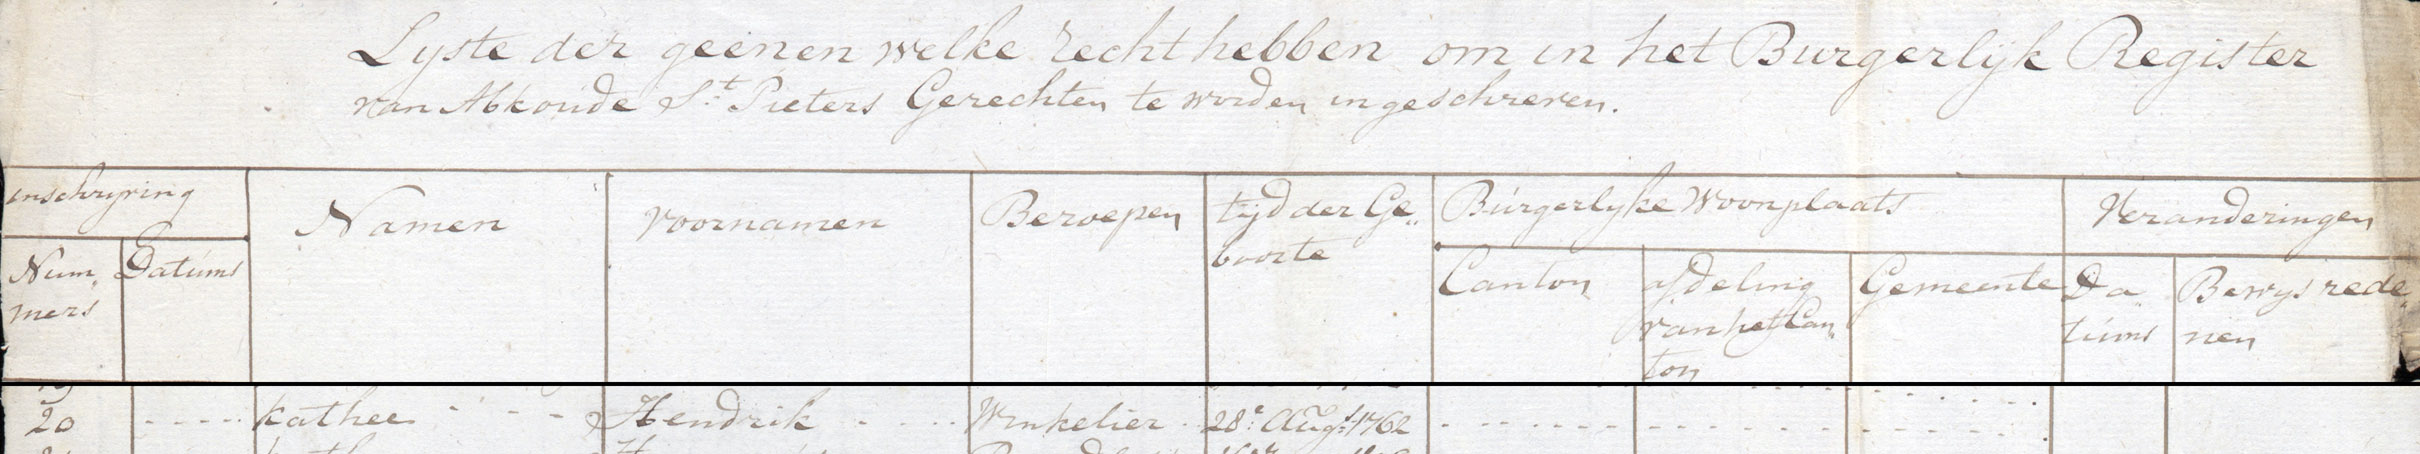 Lyste der geenen welke recht hebben om in het Burgerlijk Register
van Abkoude St. Pieters Gerechten te worden ingeschreven.
inschryving Namen voornamen Beroepen tijd der Ge„ Burgerlyke Woonplaats Veranderingen
boorte
Num„ Datums Canton afdeling Gemeente Da Bewys rede„
mers van het Can„ tums nen
ton
20 kathee Hendrik Winkelier 28e Augt. 1762